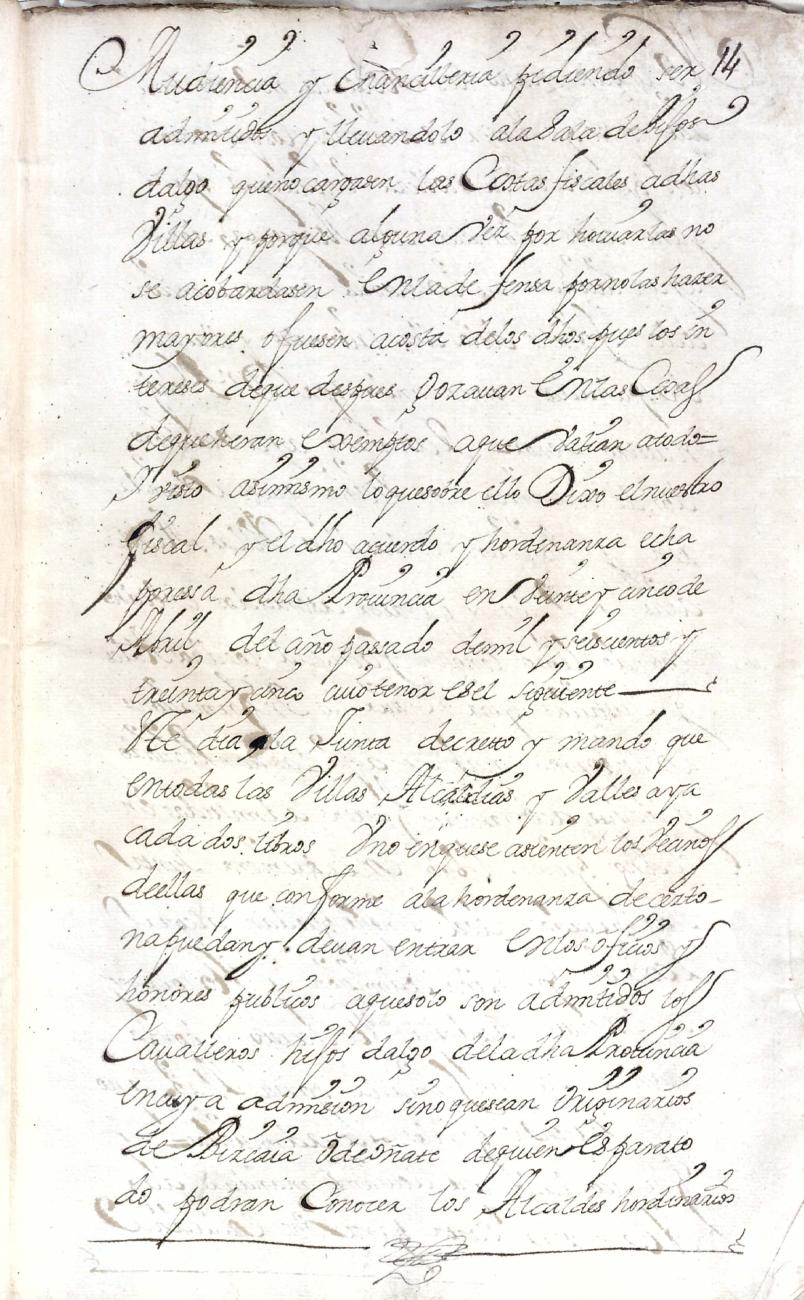 Audiencia y Chancilleria pidiendo ser 14
admitidos y lleuandolo ala Sala de hijos
dalgo que no cargasen las Costas fiscales adhas
Villas y porque alguna Vez por houiarlas no
se acobardasen Enlade fensa por no las hazer
mayores, o fuesen acosta delos dhos pues los in
tereses de que despues Gozauan Enlas Cosas
de que heran exemptos aque Valian atodo=
I visto asimismo lo que sobre ello Dixo el nuestro
fiscal y el dho aquerdo y hordenanza echa
poressa dha Prouincia en Veinte y cinco de
Abril del año passado de mil y seiscientos y
treinta y cinco cuio tenor es el siguiente
Este dia la Junta decretto y mando que
en todas las Villas Alcaldias y Valles aya
cada dos libros Vno en que se asienten los Vecinos
de ellas que conforme ala hordenanza de cesto-
na puedan y deuan entrar Enlos oficios y
honores publicos aque solo son admitidos los
Caualleros hijos dalgo dela dha Prouincia
en cuya admision sino que sean Originarios
de Bizcaia o de oñate de quien Es parato
do podran Conocer los Alcaldes hordinarios